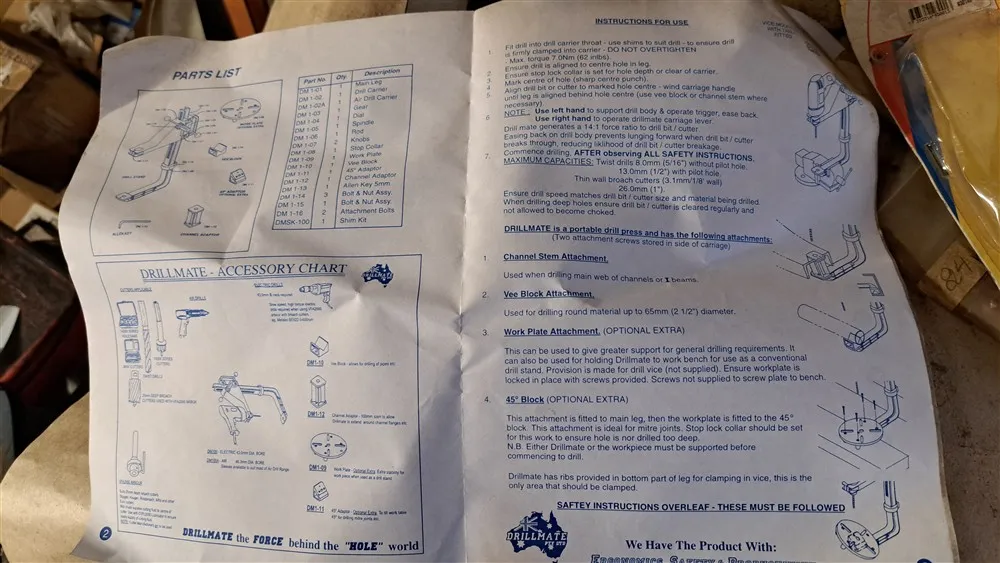 PARTS LIST
Part No. Qty. Description
DM 1-01 1 Main Leg
DM 1-02 1 Drill Carrier
DM 1-02A Air Drill Carrier
DM 1-03 Gear
DM 1-04 Dial
DM 1-05 Spindle
DM 1-06 Roll
DM 1-07 Knobs
DM 1-08 Stop Collar
DM 1-09 Work Plate
DM 1-10 Vee Block
DM 1-11 45° Adaptor
DM 1-12 Channel Adaptor
DM 1-13 Allen Key 5mm
DM 1-14 3 Bolt & Nut Assy.
DM 1-15 1 Bolt & Nut Assy.
DM 1-16 2 Attachment Bolts
DMSK-100 1 Shim Kit
DRILL STAND
VEE BLOCK
ALLEN KEY
CHANNEL ADAPTOR
DRILLMATE - ACCESSORY CHART
DRILLMATE
AIR DRILLS
ELECTRIC DRILLS
DM1-10
DM1-12
DM1-09
DM1-11
2
DRILLMATE the FORCE behind the "HOLE" world
INSTRUCTIONS FOR USE
1. Fit drill into drill carrier throat - use shims to suit drill - to ensure drill
is firmly clamped into carrier - DO NOT OVERTIGHTEN
- Max. torque 7.0Nm (62 inlbs).
Ensure drill is aligned to centre hole in leg.
2. Ensure stop lock collar is set for hole depth or clear of carrier.
3. Mark centre of hole (sharp centre punch).
4. Align drill bit or cutter to marked hole centre - wind carriage handle
5. until leg is aligned behind hole centre (use vee block or channel stem where
necessary)
NOTE: Use left hand to support drill body & operate trigger, ease back.
6. Use right hand to operate drillmate carriage lever.
Drill mate generates a 14:1 force ratio to drill bit / cutter
Easing back on drill body prevents lunging forward when drill bit / cutter
breaks through, reducing liklihood of drill bit / cutter breakage.
7. Commence drilling, AFTER observing ALL SAFETY INSTRUCTIONS.
MAXIMUM CAPACITIES: Twist drills 8.0mm (5/16") without pilot hole.
13.0mm (1/2") with pilot hole.
Thin wall broach cutters (3.1mm/1/8' wall)
26.0mm (1").
Ensure drill speed matches drill bit / cutter size and material being drilled.
When drilling deep holes ensure drill bit / cutter is cleared regularly and
not allowed to become choked.
DRILLMATE is a portable drill press and has the following attachments:
(Two attachment screws stored in side of carriage)
1. Channel Stem Attachment.
Used when drilling main web of channels or I beams.
2. Vee Block Attachment.
Used for drilling round material up to 65mm (2 1/2") diameter.
3. Work Plate Attachment. (OPTIONAL EXTRA)
This can be used to give greater support for general drilling requirements. It
can also be used for holding Drillmate to work bench for use as a conventional
drill stand. Provision is made for drill vice (not supplied). Ensure workplate is
locked in place with screws provided. Screws not supplied to screw plate to bench.
4. 45° Block (OPTIONAL EXTRA)
This attachment is fitted to main leg, then the workplate is fitted to the 45°
block. This attachment is ideal for mitre joints. Stop lock collar should be set
for this work to ensure hole is nor drilled too deep.
N.B. Either Drillmate or the workpiece must be supported before
commencing to drill.
Drillmate has ribs provided in bottom part of leg for clamping in vice, this is the
only area that should be clamped.
SAFTEY INSTRUCTIONS OVERLEAF - THESE MUST BE FOLLOWED
DRILLMATE
PTY LTD
We Have The Product With:
84